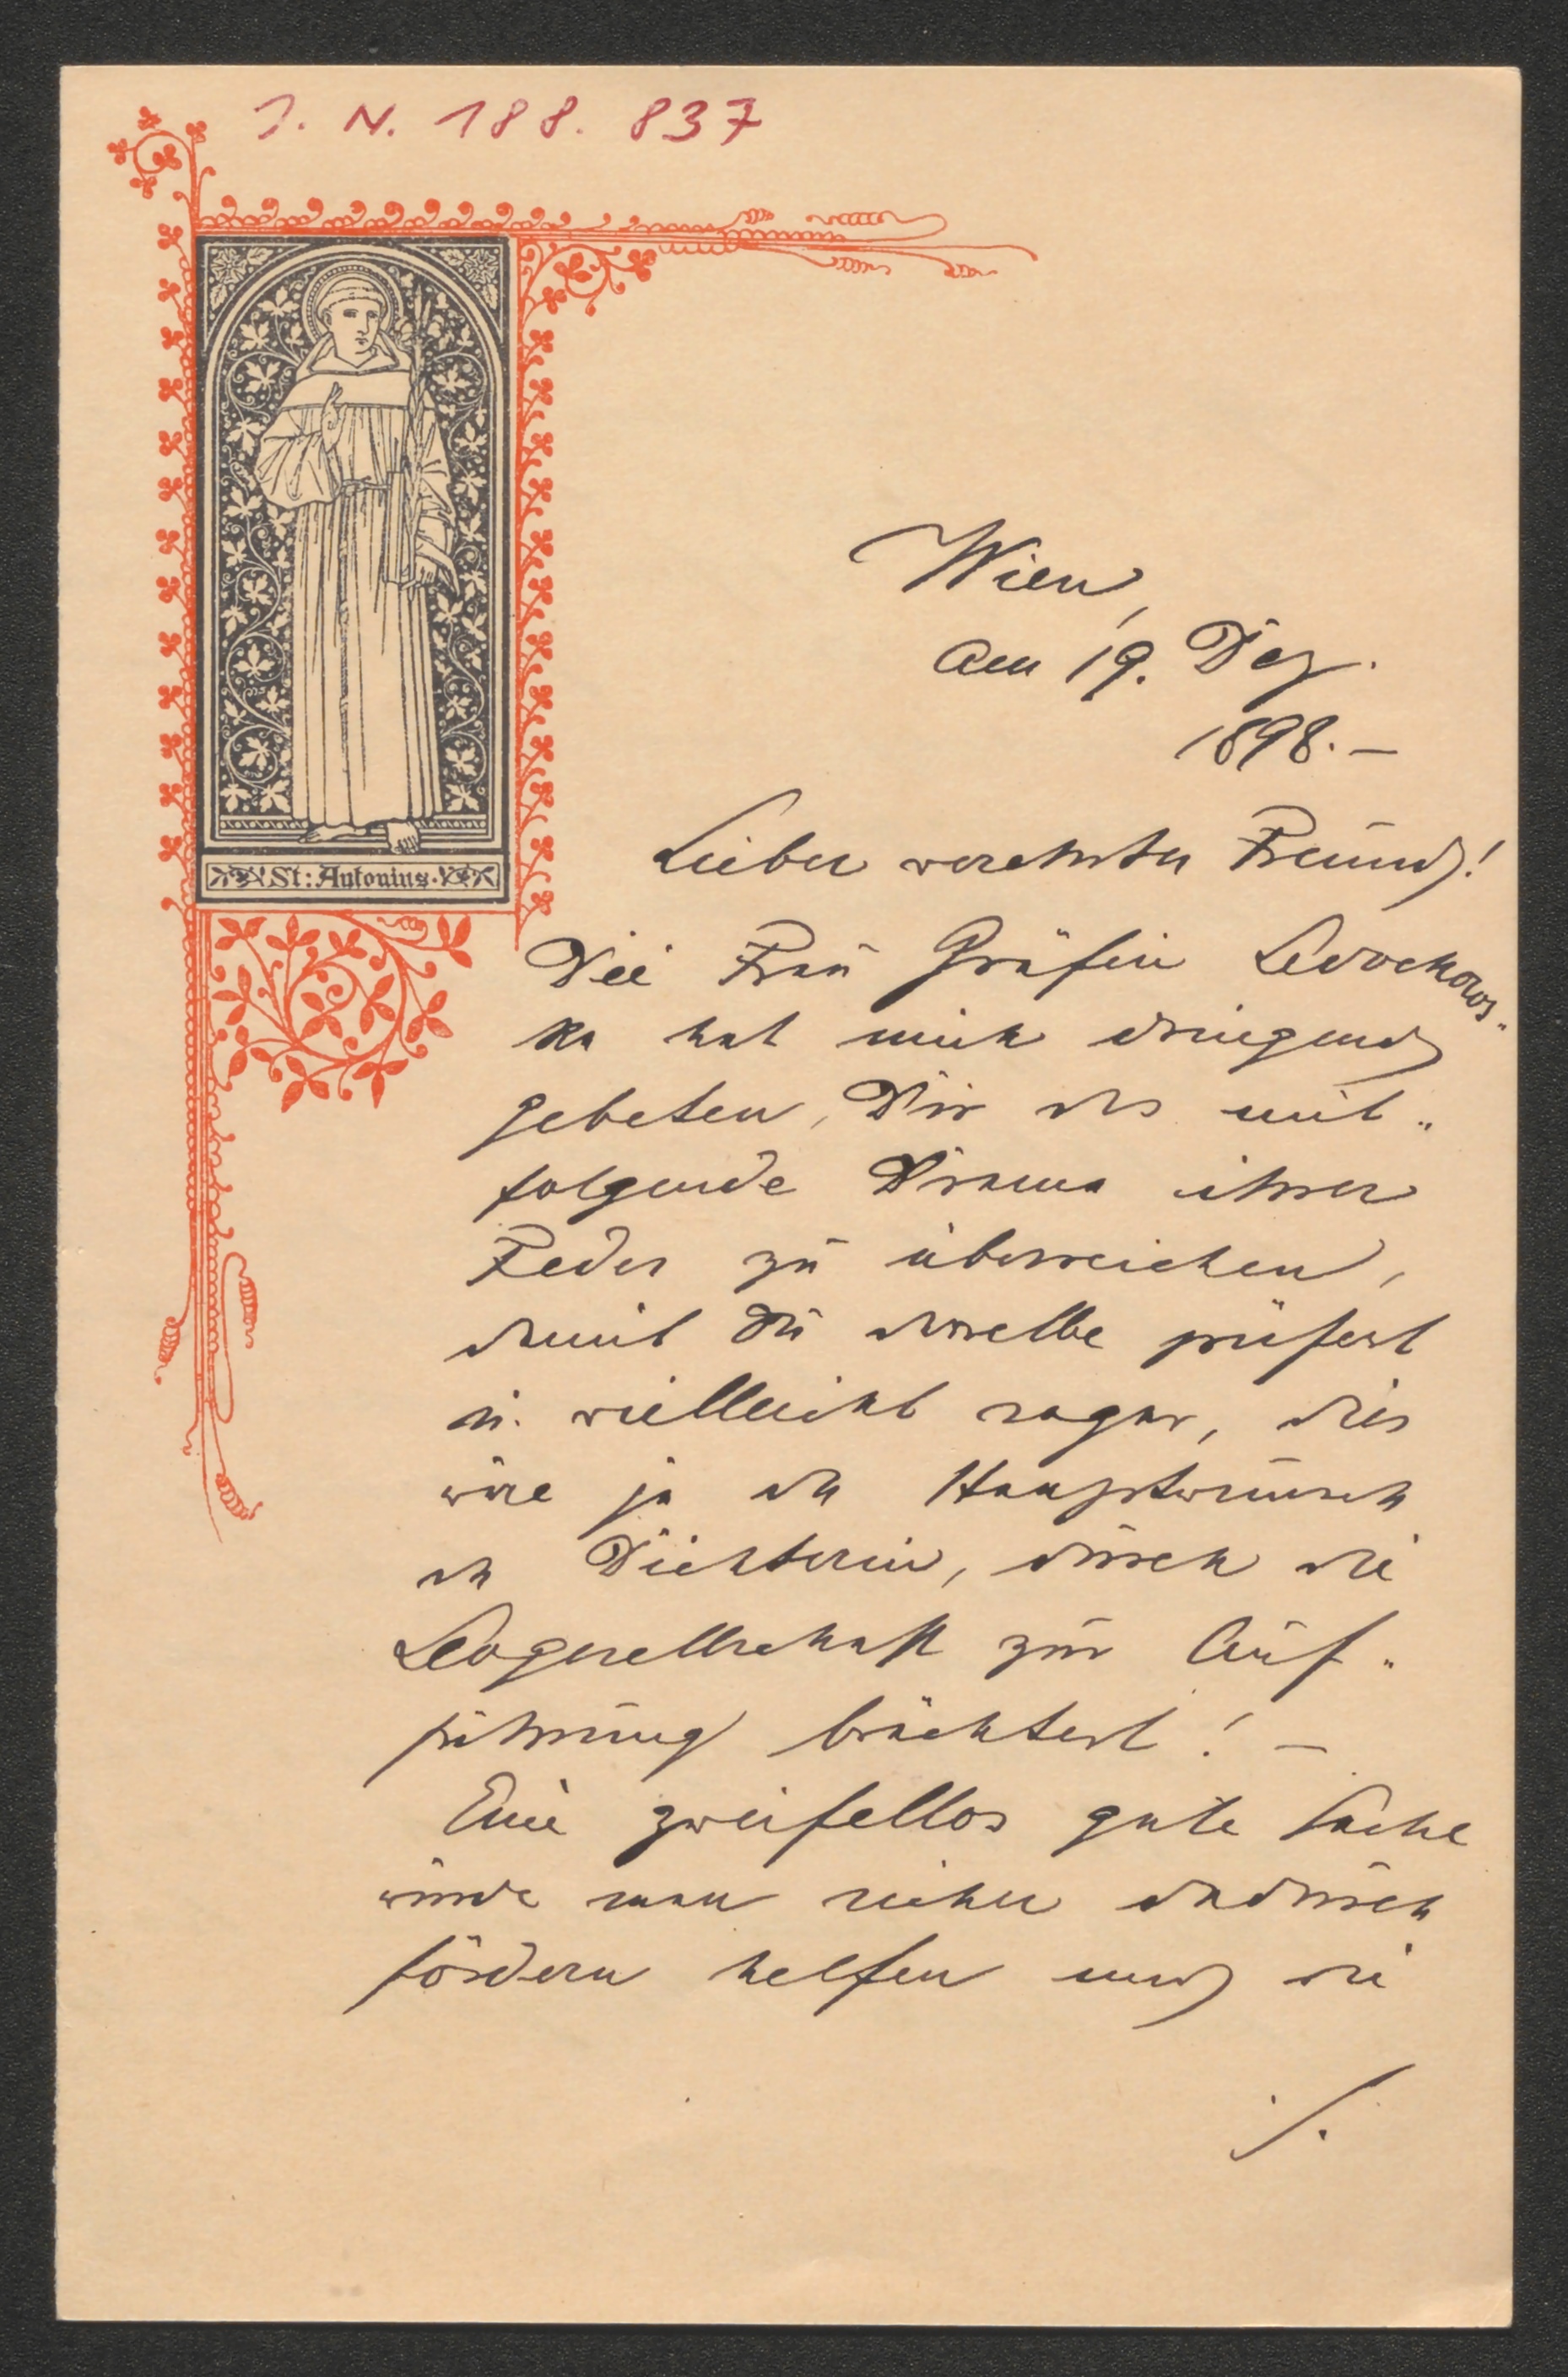 J. N. 188. 837
St: Antonius.
Wien,
am 19. Dez.
1898. –
Lieber verehrter Freund!
Die Frau Gräfin Ledochows-
ka hat mich dringend
gebeten, Dir das mit-
folgende Drama ihrer
Feder zu überreichen,
damit Du dasselbe prüfest
u. vielleicht sogar, dies
wäre ja der Hauptwunsch
der Dichterin, durch die
Leogesellschaft zur Auf-
führung brächtest! –
Eine zweifellos gute Sache
würde man sicher dadurch
fördern helfen und die
./.